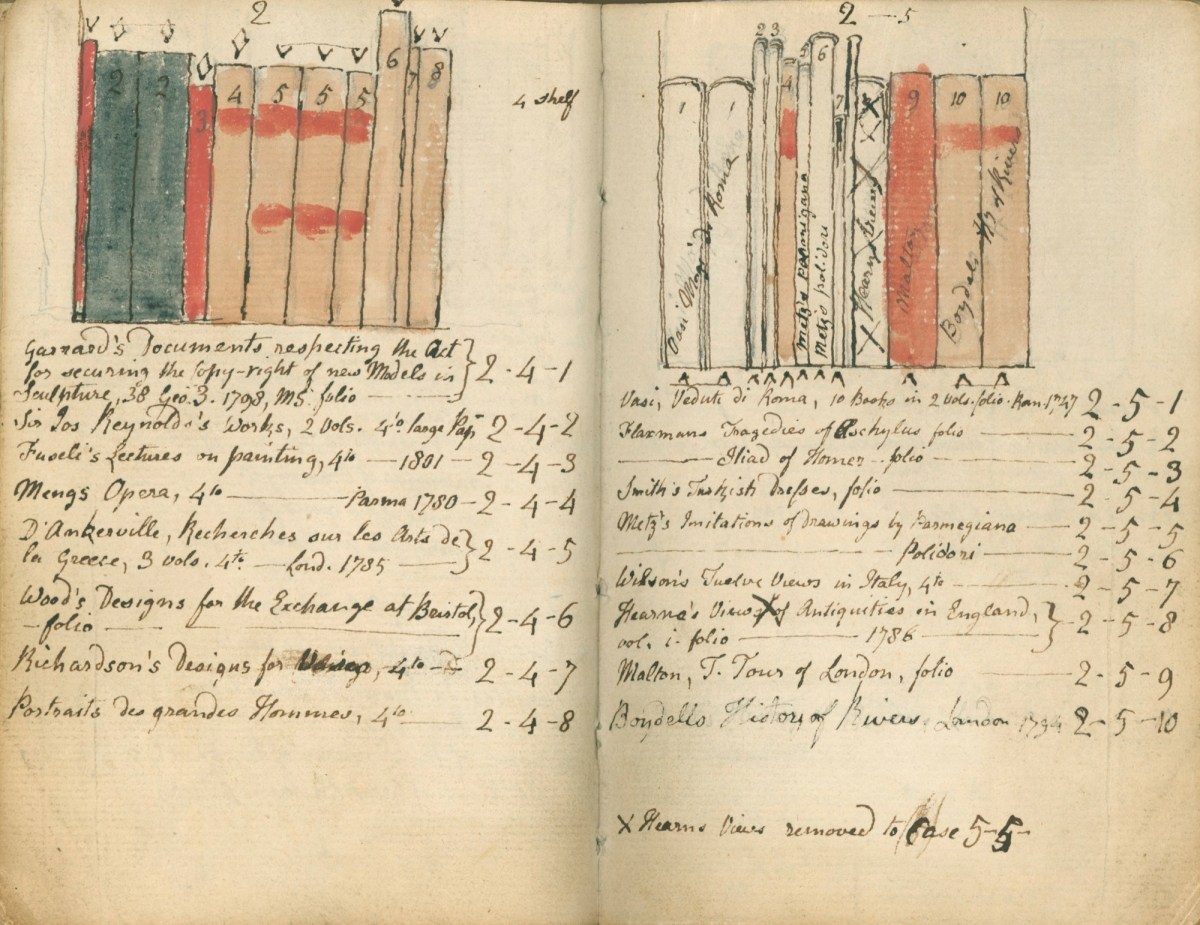 2
2 2 3 4 5 5 5 6 7 8
4 shelf
Garrard's Documents respecting the Act
for securing the Copy-right of new Models in } 2 - 4 - 1
Sculpture, 38 Geo. 3. 1798, MS. folio
Sir Jos Reynolds's Works, 2 Vols. 4to. large Pap 2 - 4 - 2
Fuseli's Lectures on painting, 4to — 1801 — 2 - 4 - 3
Mengs Opera, 4to — Parma 1780 — 2 - 4 - 4
D'Ankerville, Recherches sur les Arts de
la Greece, 3 vols. 4to. — Lond. 1785 — } 2 - 4 - 5
Wood's Designs for the Exchange at Bristol,
— folio — } 2 - 4 - 6
Richardson's Designs for 4to — 2 - 4 - 7
Portraits des grandes Hommes, 4to — 2 - 4 - 8
2 - 5
1 1 2 3 4 5 6 7 8 9 10 10
Vasi Mag di Roma
Metz's Parmigiana
Metz's polidori
X Hearns Views
Malton
Boydels H of Rivers
Vasi, Vedute di Roma, 10 Books in 2 Vols. folio. Rom. 1747 2 - 5 - 1
Flaxmans Tragedies of Aschylus folio — 2 - 5 - 2
— Iliad of Homer - folio — 2 - 5 - 3
Smith's Turkish Dresses, folio — 2 - 5 - 4
Metz's Imitations of drawings by Parmegiana — 2 - 5 - 5
— Polidori — 2 - 5 - 6
Wilson's Twelve Views in Italy, 4to — 2 - 5 - 7
Hearne's Views X of Antiquities in England,
vol. i. folio — 1786 — } 2 - 5 - 8
Malton, T. Tour of London, folio — 2 - 5 - 9
Boydells History of Rivers. London 1794 2 - 5 - 10
X Hearns Views removed to Case 5 - 5 -